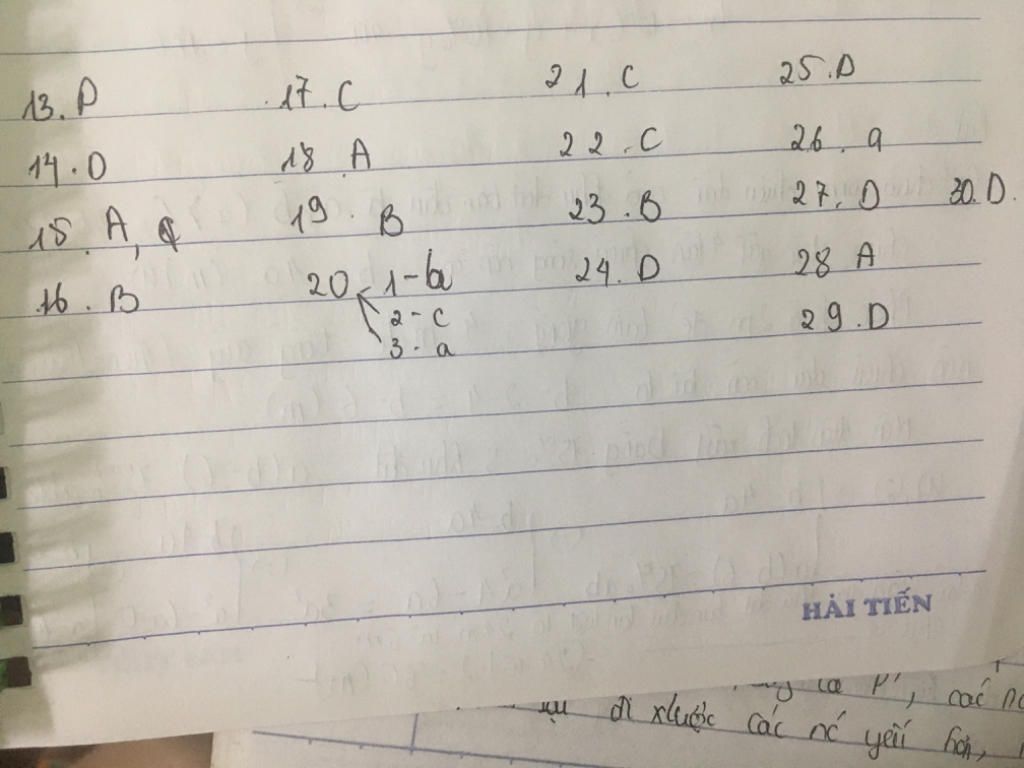 13. D 17. C 21. C 25. D
14. D 18. A 22. C 26. a
15. A, 19. B 23. B 27. D 30. D.
16. B 20 1- 24. D 28 A
2- c 29. D
3- a
HẢI TIẾN
các
đi xlược các nć yếu hơn,